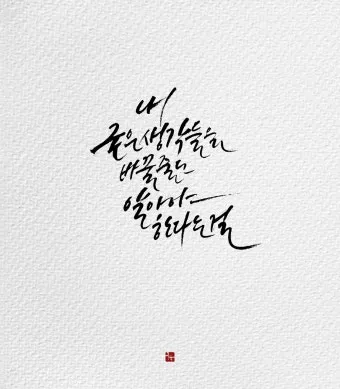 내
굳은 생각들을
바꿀줄도
알아야
한다는걸